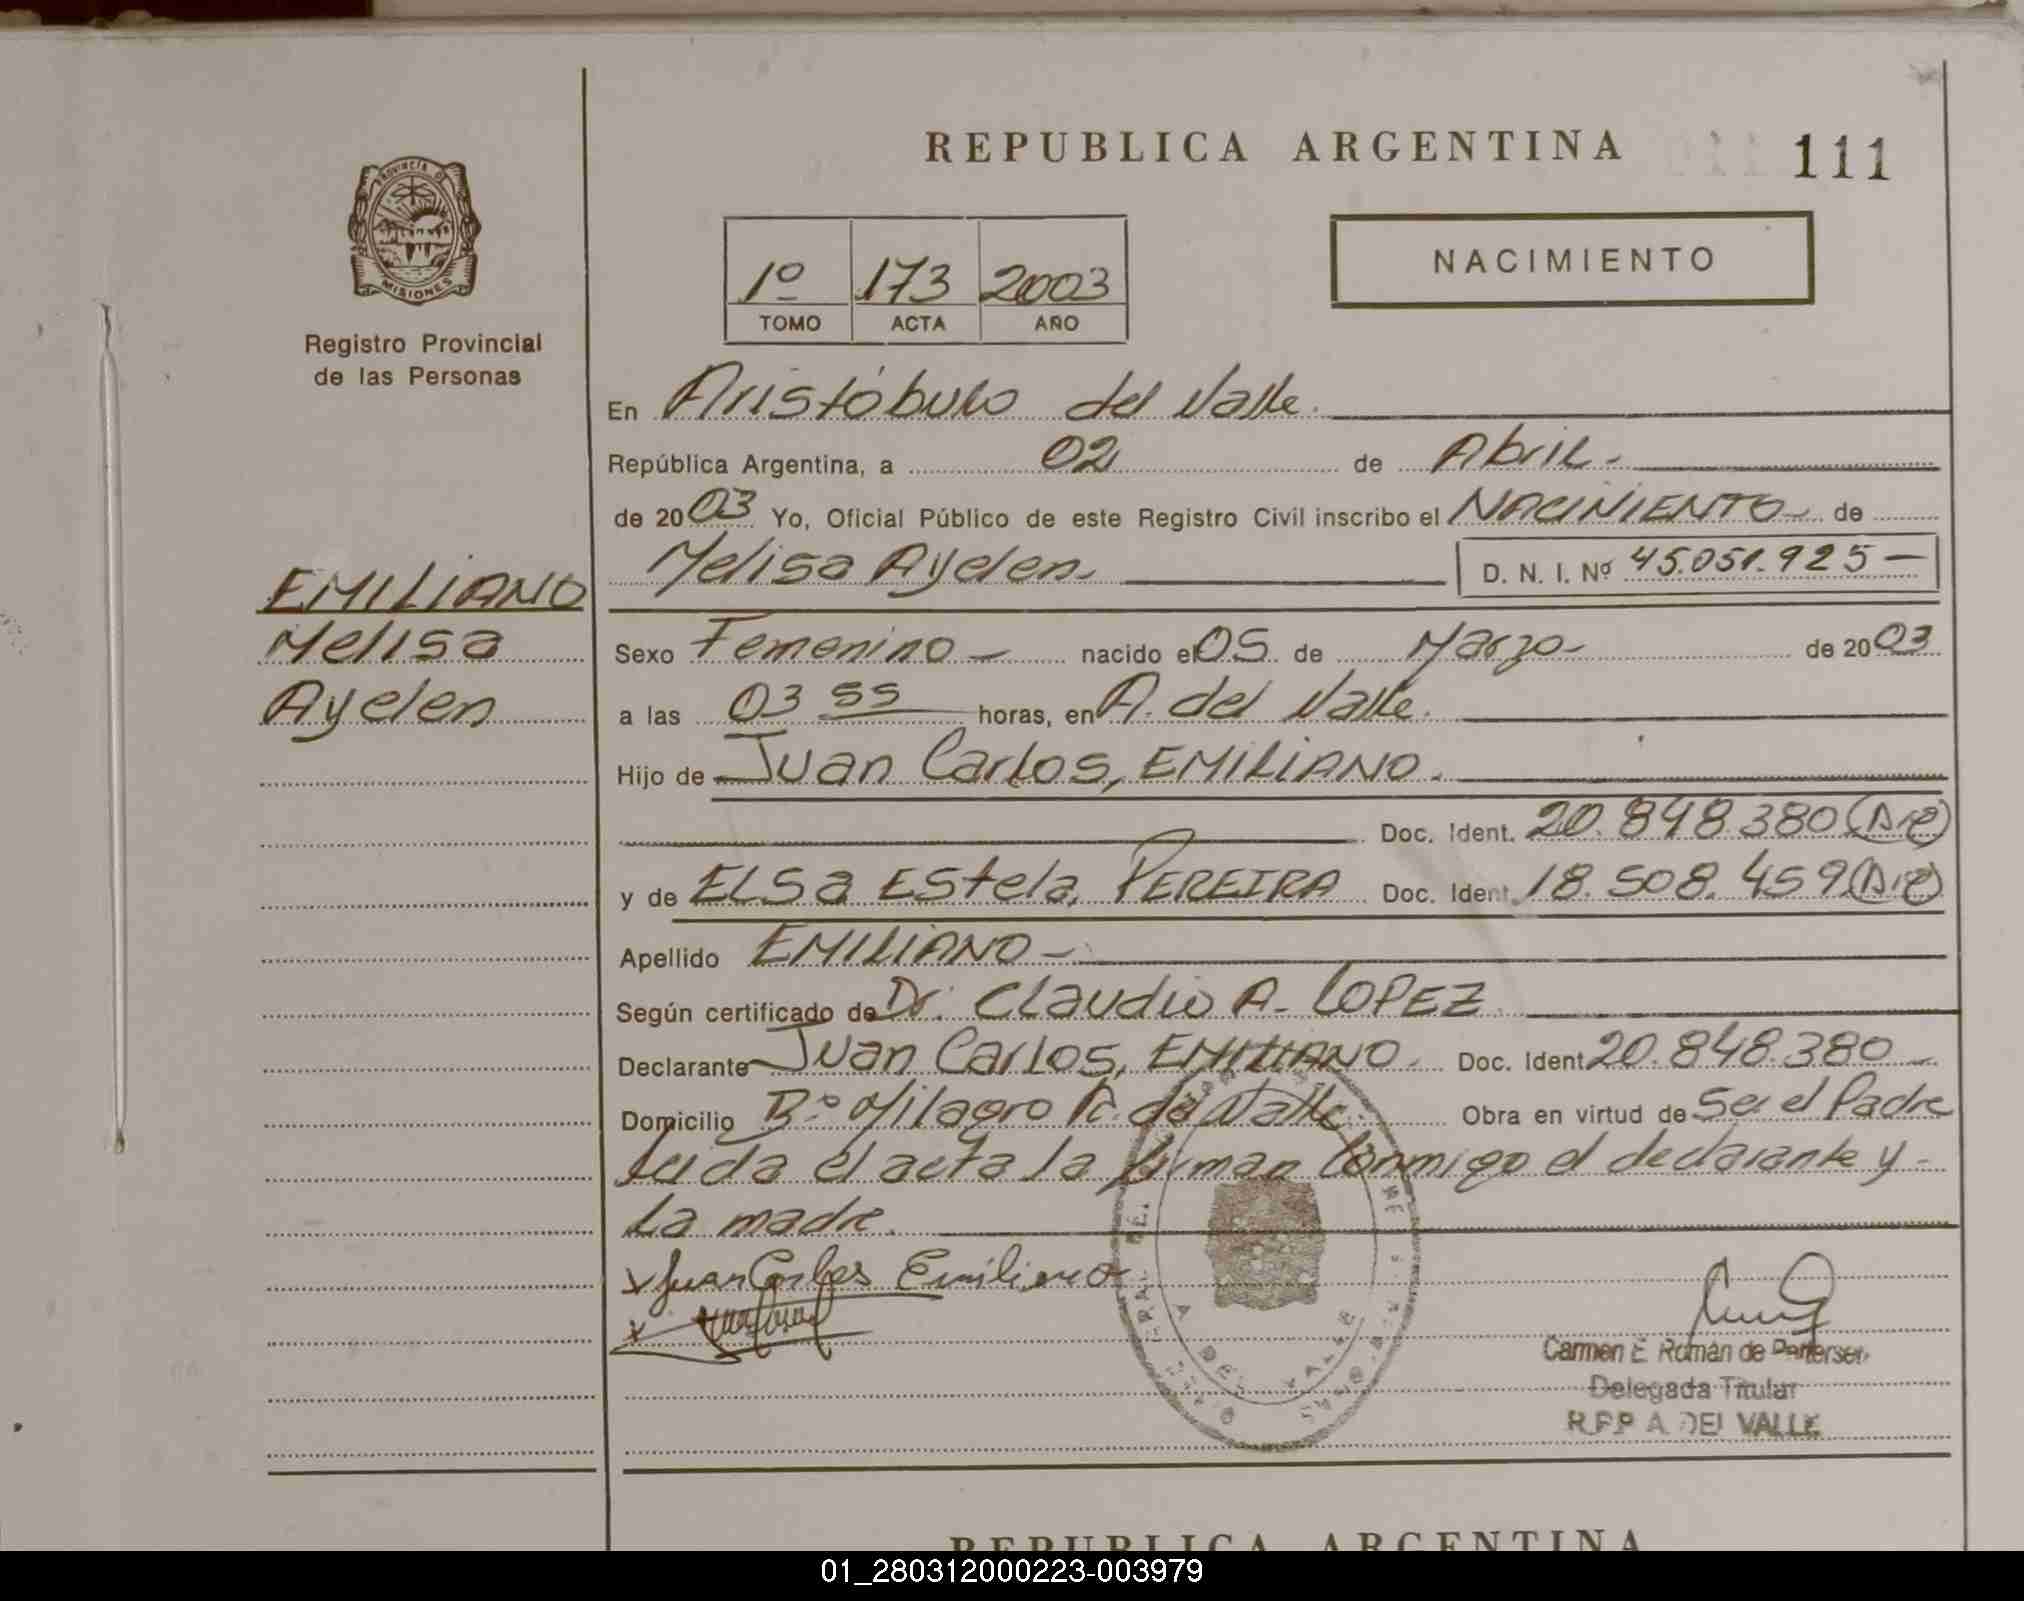 REPUBLICA ARGENTINA 111
PROVINCIA DE
MISIONES
Registro Provincial
de las Personas
1º 173 2003
TOMO ACTA AÑO
NACIMIENTO
En Aristóbulo del Valle.
República Argentina, a 02 de Abril.
de 2003 Yo, Oficial Público de este Registro Civil inscribo el NACIMIENTO de
Melisa Ayelen D. N. I. Nº 45.051.925
EMILIANO
Melisa
Ayelen
Sexo Femenino nacido el 05 de Marzo de 2003
a las 03 55 horas, en A. del Valle.
Hijo de Juan Carlos, EMILIANO.
Doc. Ident. 20.848.380
y de ELSa EStela, PEREIRA Doc. Ident. 18.508.459
Apellido EMILIANO
Según certificado de Dr. Claudio A. LOPEZ
Declarante Juan Carlos, EMILIANO. Doc. Ident. 20.848.380
Domicilio Bº Milagro A. del Valle. Obra en virtud de Ser el Padre
Leida el acta la firman Conmigo el declarante y
La madre.
x Juan Carlos Emiliano
x
A DEL VALLE
Carmen E. Román de
Delegada Titular
R.P.P A. DEL VALLE
REPUBLICA ARGENTINA
01_280312000223-003979